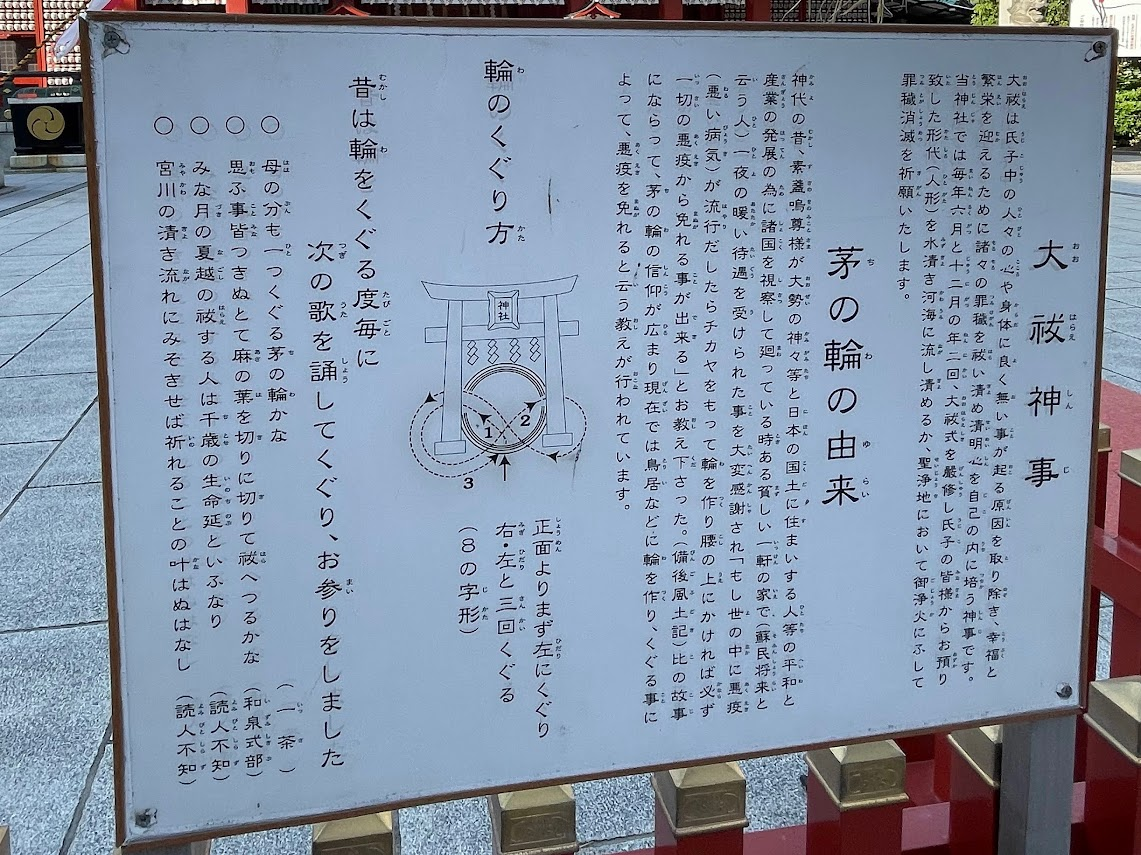 大祓神事
大祓は氏子中の人々の心や身体に良く無い事が起る原因を取り除き、幸福と
繁栄を迎えるために諸々の罪穢を祓い清め清明心を自己の内に培う神事です。
当神社では毎年六月と十二月の年二回、大祓式を厳修し氏子の皆様からお預り
致した形代（人形）を水清き河海に流し清めるか、聖浄地において御浄火にふして
罪穢消滅を祈願いたします。
茅の輪の由来
神代の昔、素盞嗚尊様が大勢の神々等と日本の国土に住まいする人等の平和と
産業の発展の為に諸国を視察して廻っている時ある貧しい一軒の家で（蘇民将来と
云う人）一夜の暖い待遇を受けられた事を大変感謝され「もし世の中に悪疫
（悪い病気）が流行だしたらチカヤをもって輪を作り腰の上にかければ必ず
一切の悪疫から免れる事が出来る」とお教え下さった。（備後風土記）比の故事
にならって、茅の輪の信仰が広まり現在では鳥居などに輪を作り、くぐる事に
よって、悪疫を免れると云う教えが行われています。
輪のくぐり方
神社
1
2
3
正面よりまず左にくぐり
右・左と三回くぐる
（８の字形）
昔は輪をくぐる度毎に
次の歌を誦してくぐり、お参りをしました
○ 母の分も一つくぐる茅の輪かな （一茶）
○ 思ふ事皆つきねとて麻の葉を切りに切りて祓へつるかな （和泉式部）
○ みな月の夏越の祓する人は千歳の生命延といふなり （読人不知）
○ 宮川の清き流れにみそきせば祈れることの叶はぬはなし （読人不知）